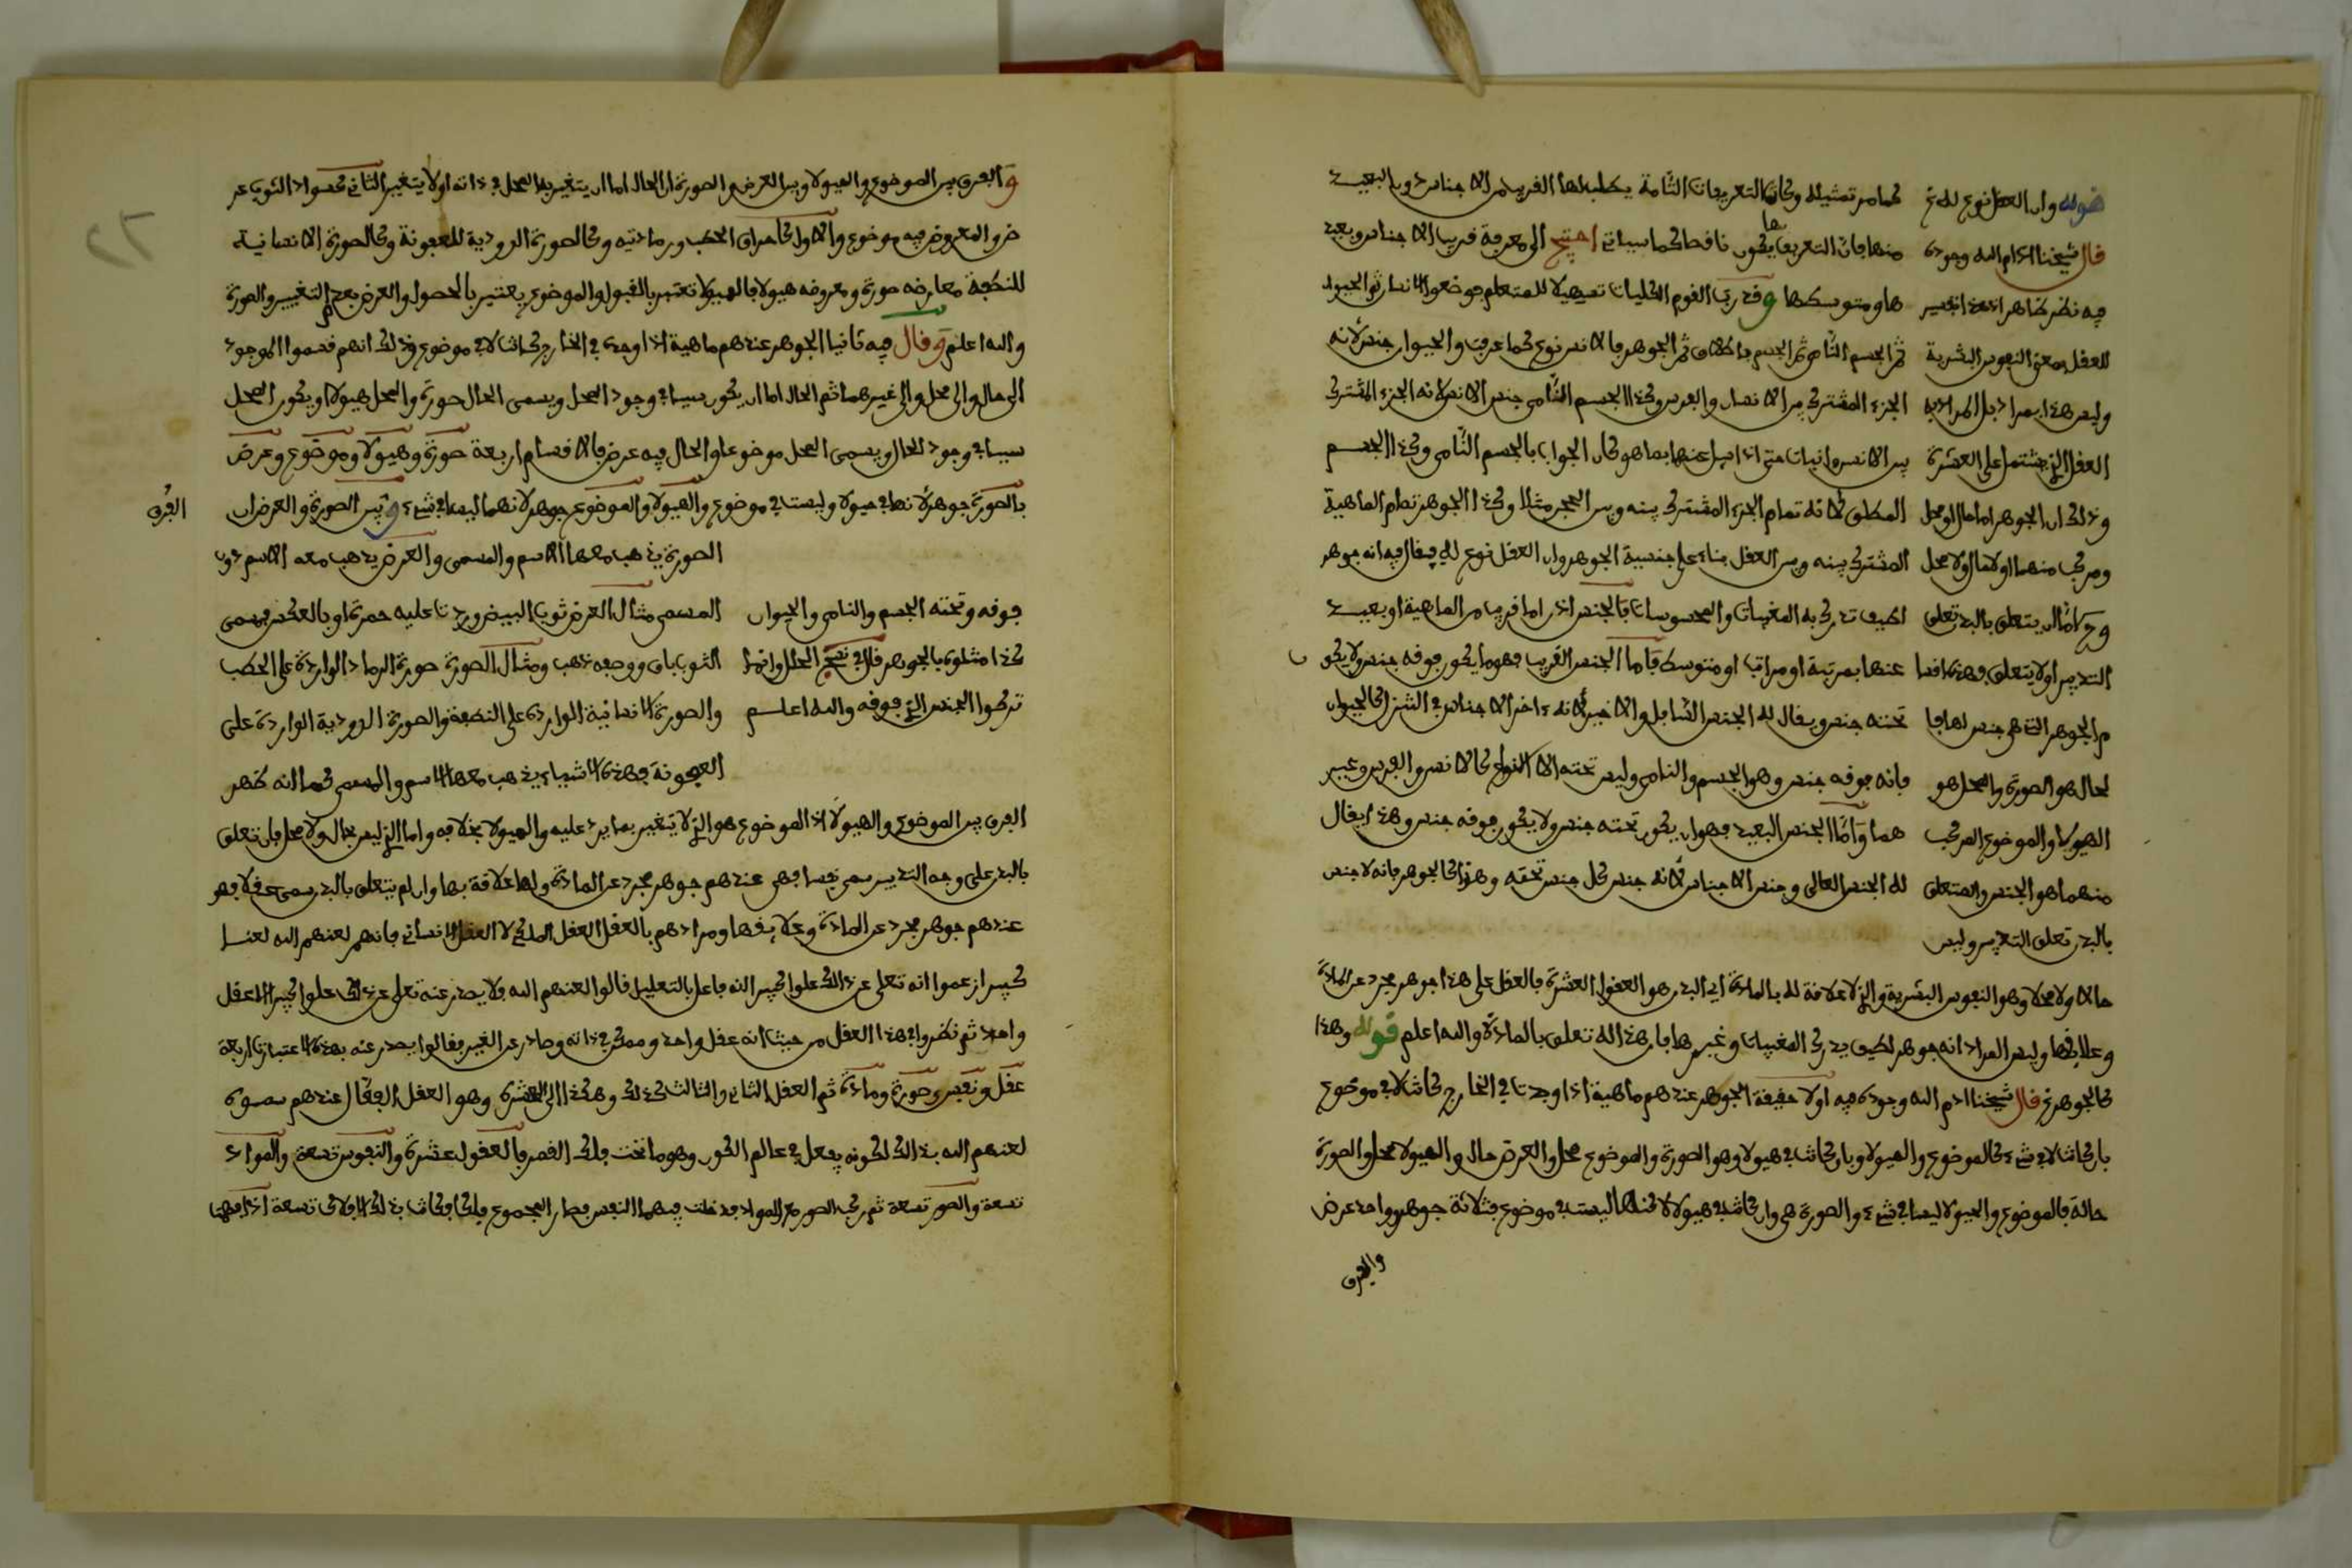 قوله وان العقل نوع له الخ
قال شيخنا ادام الله وجوده
فيه نظر ظاهر اذ هذا تفسير
للعقل بمعنى النفوس البشرية
وليس هذا بمراد بل المراد به
العقل الذي يشتمل على العشرة
وذلك ان الجوهر اما حال او محل
ومركب منهما او لا حال ولا محل
وح اما ان يتعلق بالبدن تعلق
التدبير او لا يتعلق فهذه اقسا
م الجوهر التي هي جنس لها فا
لحال هو الصورة والمحل هو
الهيولا والموضوع المركب
منهما هو الجنس والمتعلق
بالبدن تعلق التدبير وليس
كما مر تمثيله وكانت التعريفات التامة يطلب لها القريب من الاجناس دون البعيد
منها فان التعريف بها يكون ناقصا كما سياتي احتيج الى معرفة قريب الاجناس وبعيد
ها ومتوسطها وقد رتب القوم الكليات تسهيلا للمتعلم فوضعوا الانسان ثم الحيوان
ثم الجسم النامي ثم الجسم باطلاق ثم الجوهر فالانس نوع كما عرفت والحيوان جنس لانه
الجزء المشترك بين الانسان والفرس وكذا الجسم النامي جنس الانس لانه الجزء المشترك
بين الانس والنبات حتى اذا سيل عنها بما هو كان الجواب بالجسم النامي وكذا الجسم
المطلق لانه تمام الجزء المشترك بينه وبين الحجر مثلا وكذا الجوهر تمام الماهية
المشترك بينه وبين العقل بناء على جنسية الجوهر وان العقل نوع له فيقال فيه انه جوهر
لطيف تدرك به المغيبات والمحسوسات فالجنس اذن اما قريب من الماهية او بعيد
عنها بمرتبة او مراتب او متوسط فاما الجنس القريب فهو ما يكون فوقه جنس ولا يكو ن
تحته جنس ويقال له الجنس السافل والاخير لانه ءاخر الاجناس في التنزل كالحيوان
فانه فوقه جنس وهو الجسم والنامي وليس تحته الا النوع كالانس والفرس وغير
هما واما الجنس البعيد فهو ان يكون تحته جنس ولا يكون فوقه جنس وهذا يقال
له الجنس العالي وجنس الاجناس لانه جنس كل جنس تحته وهو كالجوهر فانه لا جنس
حالا ولا محلا وهو النفوس البشرية والذي لا علاقة له بالمادة اي البدن هو العقول العشرة فالعقل على هذا جوهر مجرد عن المادة
وعلائقها وليس المراد انه جوهر لطيف يدرك المغيبات وغيرها فان هذا له تعلق بالمادة والله اعلم قوله وهذا
كالجوهر الخ قال شيخنا ادم الله وجوده فيه اولا حقيقة الجوهر عندهم ماهية اذا وجدت في الخارج كانت لا في موضوع
بان كانت لا في شيء كالموضوع والهيولا وبان كانت في هيولا وهو الصورة والموضوع محل والعرض حال والهيولا محل والصورة
حالة فالموضوع والهيولا ليسا في شيء والصورة هي وان كانت في هيولا لاكنها ليست في موضوع فثلاثة جوهر وواحد عرض
والفرق
والفرق بين الموضوع والهيولا وبين العرض والصورة ان الحال اما ان يتغير به المحل في ذاته او لا يتغير الثاني كسواد الثوب عر
ض والمعروض فيه موضوع والاول كاحراق الحطب ورمادتيه وكالصورة الدودية للعفونة وكالصورة الانسانية
للنطفة معارضه صورة ومعروضه هيولا فالهيولا تعتبر بالقبول والموضوع يعتبر بالحصول والعرض بعدم التغيير والصورة
والله اعلم وقال فيه ثانيا الجوهر عندهم ماهية اذا وجدت في الخارج كانت لا في موضوع وذلك انهم قسموا الموجود
الى حال والى محل والى غيرهما ثم الحال اما ان يكون سببا في وجود المحل ويسمى الحال صورة والمحل هيولا او يكون المحل
سببا في وجود الحال ويسمى المحل موضوعا والحال فيه عرض فالاقسام اربعة صورة وهيولا وموضوع وعرض
فالصورة جوهر لانها في هيولا وليست في موضوع والهيولا والموضوع جوهر لانهما ليسا في شيء وبين الصورة والعرض ان
الفرق
الصورة يذهب معها الاسم والمسمى والعرض يذهب معه الاسم دون
المسمى مثال العرض ثوب ابيض وردت عليه حمرة او بالعكس فمسمى
الثوب باق ووصفه ذهب ومثال الصورة صورة الرماد الواردة على الحطب
والصورة الانسانية الواردة على النطفة والصورة الدودية الواردة على
العفونة فهذه الاشياء يذهب معها الاسم والمسمى كما انه ظهر
فوقه وتحته الجسم والنامي والحيوان
كذا مثلوه بالجوهر قال في نصيح الحلل وانما
تركوا الجنس الذي فوقه والله اعلم
الفرق بين الموضوع والهيولا اذ الموضوع هو الذي لا يتغير بما يرد عليه والهيولا بخلافه واما الذي ليس بحال ولا محل فان تعلق
بالبدن على وجه التدبير سمي نفسا فهي عندهم جوهر مجرد عن المادة ولها علاقة بها وان لم يتعلق بالبدن سمي عقلا فهو
عندهم جوهر مجرد عن المادة وعلائقها ومرادهم بالعقل العقل الملكي لا العقل الانساني فانهم لعنهم الله لعنا
كبيرا زعموا انه تعلى عن ذلك علوا كبيرا انه فاعل بالتعليل قالوا لعنهم الله فلا يصدر عنه تعلى عن ذلك علوا كبيرا الا عقل
واحد ثم نظروا في هذا العقل من حيث انه عقل واحد وممكن في ذاته وصادر عن الغير فقالوا يصدر عنه بهذه الاعتبارات اربعة
عقل ونفس وصورة ومادة ثم العقل الثاني والثالث كذلك وهكذا الى العشرة وهو العقل الفعال عندهم سموه
لعنهم الله بذلك لكونه يفعل في عالم الكون وهو ما تحت فلك القمر فالعقول عشرة والنفوس تسعة والمواد
تسعة والصور تسعة ثم ركب الصور مع المواد فدخلت فيهما النفس فصار المجموع فلكا فكانت بذلك الافلاك تسعة